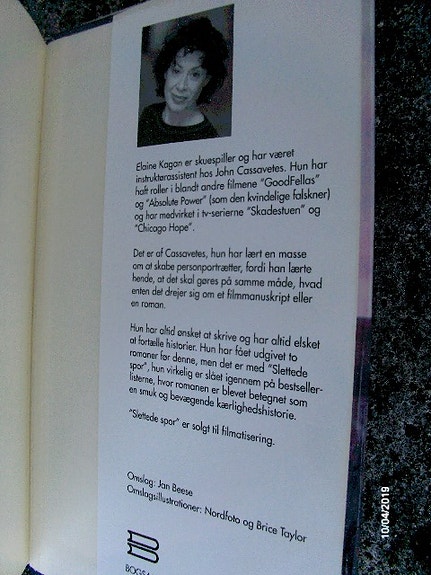 Elaine Kagan er skuespiller og har været
instruktørassistent hos John Cassavetes. Hun har
haft roller i blandt andre filmene "GoodFellas"
og "Absolute Power" (som den kvindelige falskner)
og har medvirket i tv-serierne "Skadestuen" og
"Chicago Hope".
Det er af Cassavetes, hun har lært en masse
om at skabe personportrætter, fordi han lærte
hende, at det skal gøres på samme måde, hvad
enten det drejer sig om et filmmanuskript eller
en roman.
Hun har altid ønsket at skrive og har altid elsket
at fortælle historier. Hun har fået udgivet to
romaner før denne, men det er med "Slettede
spor", hun virkelig er slået igennem på bestseller-
listerne, hvor romanen er blevet betegnet som
en smuk og bevægende kærlighedshistorie.
"Slettede spor" er solgt til filmatisering.
Omslag: Jan Beese
Omslagsillustrationer: Nordfoto og Brice Taylor
10/04/2019